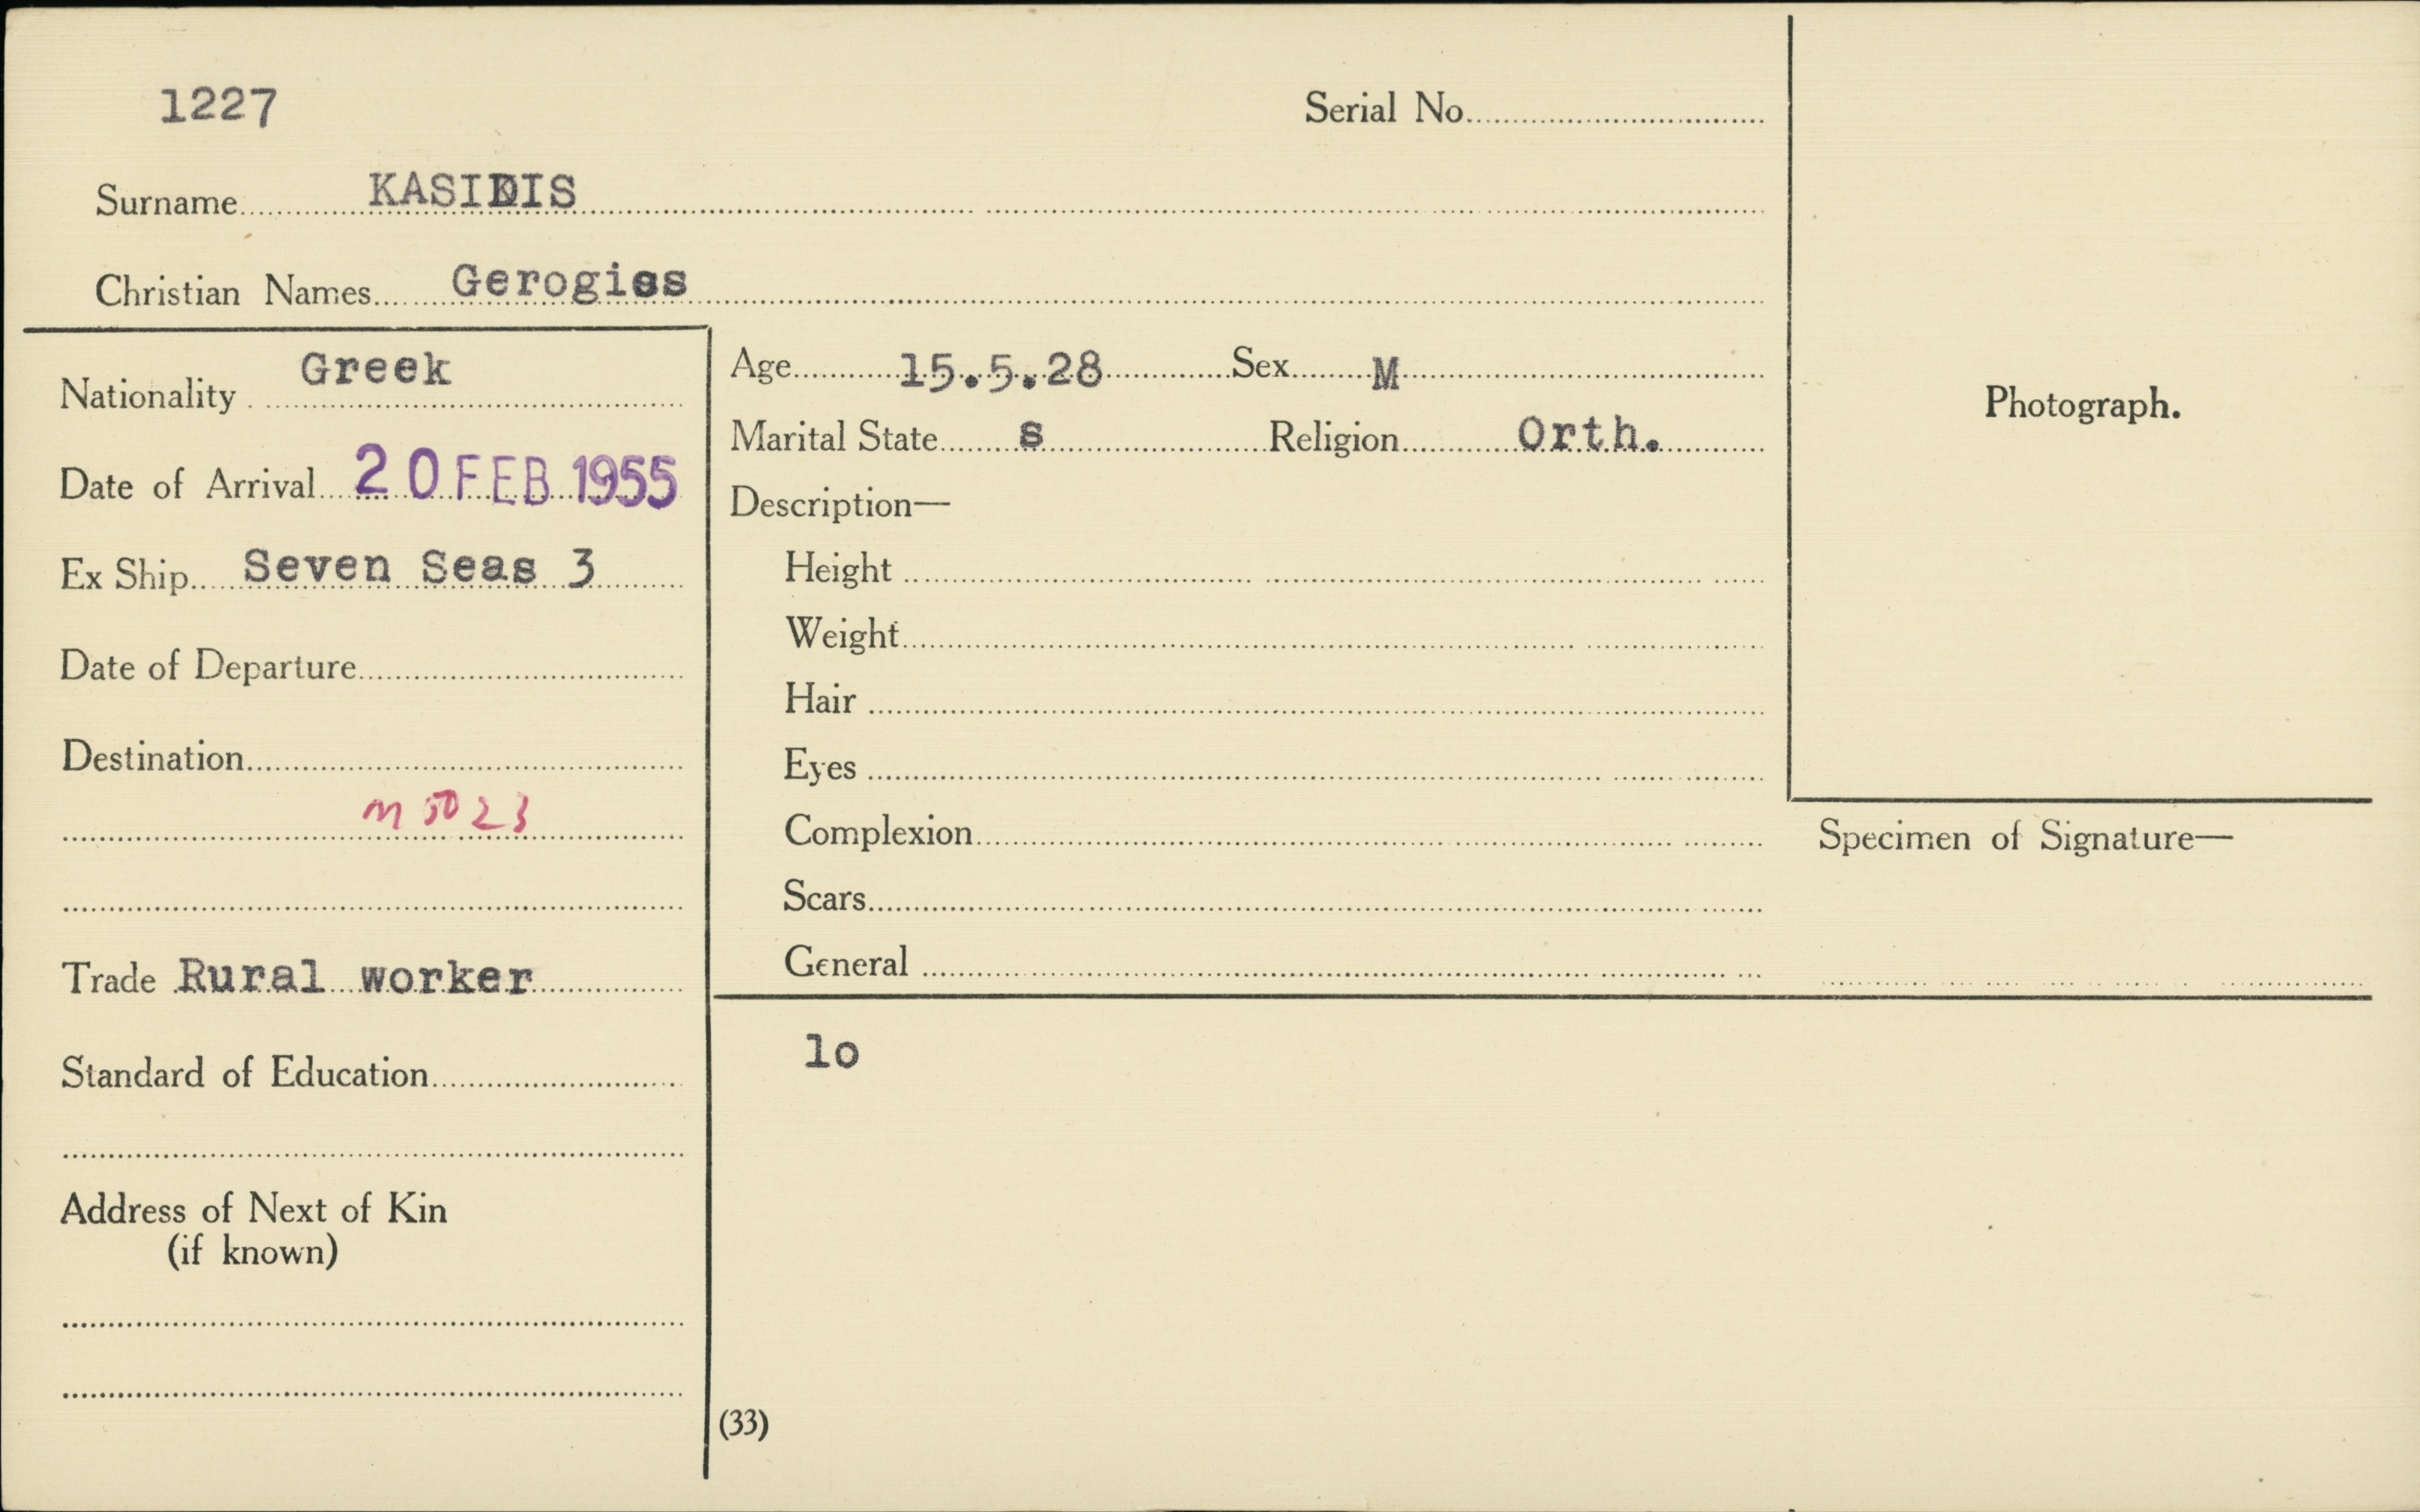 1227
Serial No.
Surname KASIDIS
Christian Names Gerogios
Nationality Greek
Date of Arrival 20 FEB 1955
Ex Ship Seven Seas 3
Date of Departure
Destination
M 5023
Trade Rural worker
Standard of Education
Address of Next of Kin
(if known)
Age 15.5.28 Sex M
Marital State s Religion Orth.
Description—
Height
Weight
Hair
Eyes
Complexion
Scars
General
lo
(33)
Photograph.
Specimen of Signature—